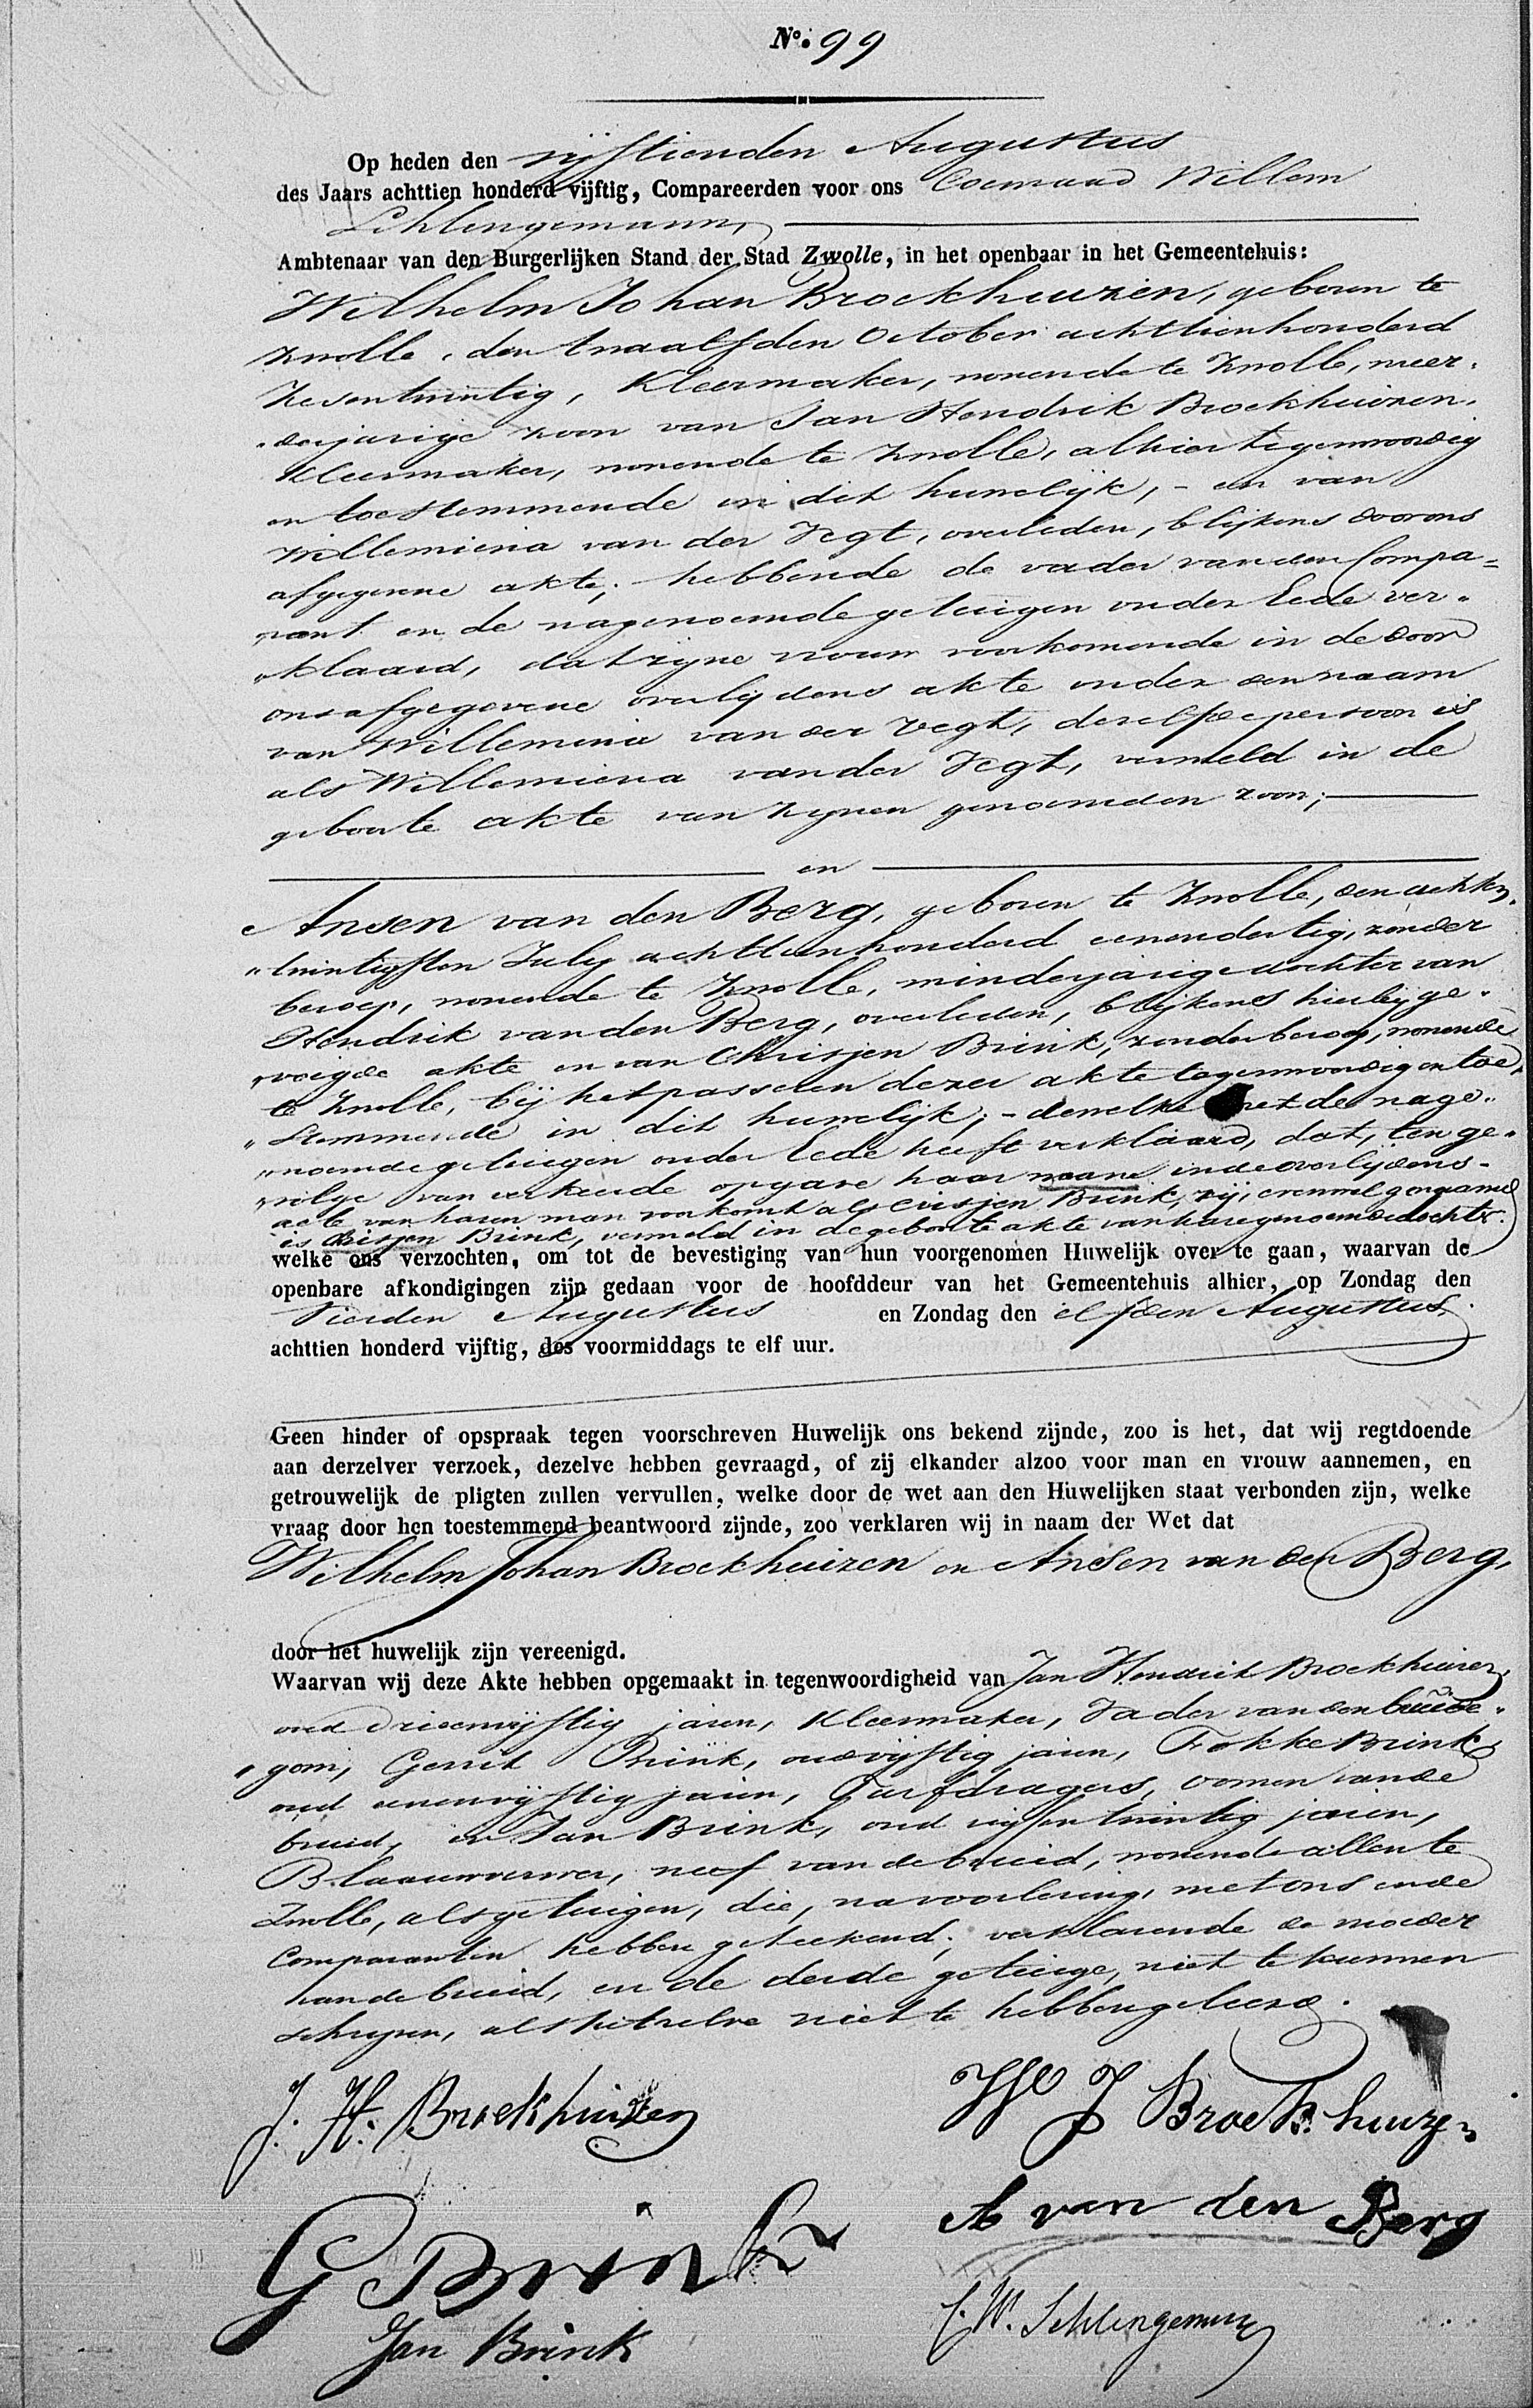 No. 99
Op heden den vijftienden Augustus
des Jaars achttien honderd vijftig, Compareerden voor ons Coenraad Willem
Schlingemann,
Ambtenaar van den Burgerlijken Stand der Stad Zwolle, in het openbaar in het Gemeentehuis:
Wilhelm Johan Broekhuizen, geboren te
Zwolle, den twaalfden October achttienhonderd
Zesentwintig, Kleermaker, wonende te Zwolle, meer-
"derjarige zoon van Jan Hendrik Broekhuizen,
Kleermaker, wonende te Zwolle, alhier tegenwoordig
en toestemmende in dit huwelijk, - en van
Willemiena van der Vegt, overleden, blijkens door ons
afgegevene akte; hebbende de vader van den Compa-
"rant en de nagenoemde getuigen onder Eede ver-
"klaard, dat zijne vrouw voorkomende in de door
ons afgegevene overlijdens akte onder den naam
van Willemina van der Vegt, dezelfde persoon is
als Willemiena van der Vegt, vermeld in de
geboorte akte van zijnen genoemden zoon;
en
Ansen van den Berg, geboren te Zwolle, den achten-
"twintigsten July achttienhonderd eenendertig, zonder
beroep, wonende te Zwolle, minderjarige dochter van
Hendrik van den Berg, overleden, blijkens hierbijge-
"voegde akte en van Chrisjen Brink, zonder beroep, wonende
te Zwolle, bij het passeren dezer akte tegenwoordig en toe-
"stemmende in dit huwelijk; - dewelke met de nage-
"noemde getuigen onder Eede heeft verklaard, dat, ten ge-
"volge van verkeerde opgave haar naam in de overlijdens-
acte van haren man voorkomt als Crisjen Brink, zij, evenwel genaamd
is Chrisjen Brink, vermeld in de geboorte akte van hare genoemde dochter.
welke ons verzochten, om tot de bevestiging van hun voorgenomen Huwelijk over te gaan, waarvan de
openbare afkondigingen zijn gedaan voor de hoofddeur van het Gemeentehuis alhier, op Zondag den
Vierden Augustus en Zondag den elfden Augustus
achttien honderd vijftig, des voormiddags te elf uur.
Geen hinder of opspraak tegen voorschreven Huwelijk ons bekend zijnde, zoo is het, dat wij regtdoende
aan derzelver verzoek, dezelve hebben gevraagd, of zij elkander alzoo voor man en vrouw aannemen, en
getrouwelijk de pligten zullen vervullen, welke door de wet aan den Huwelijken staat verbonden zijn, welke
vraag door hen toestemmend beantwoord zijnde, zoo verklaren wij in naam der Wet dat
Wilhelm Johan Broekhuizen en Ansen van den Berg,
door het huwelijk zijn vereenigd.
Waarvan wij deze Akte hebben opgemaakt in tegenwoordigheid van Jan Hendrik Broekhuizen,
oud drieenvijftig jaren, Kleermaker, Vader van den bruide-
"gom, Gerrit Brink, oud vijftig jaren, Fokke Brink
oud eenenvijftig jaren, Turfdragers, oomen van de
bruid, en Jan Brink, oud vijfentwintig jaren,
Blaauwverwer, neef van de bruid, wonende allen te
Zwolle, als getuigen, die, na voorlezing, met ons en de
Comparanten hebben geteekend; verklarende de moeder
van de bruid, en de derde getuige, niet te kunnen
schrijven, als hetzelve niet te hebben geleerd.
J. H. Broekhuizen
W J Broekhuizen
G Brink
A van den Berg
Jan Brink
C. W. Schlingemann